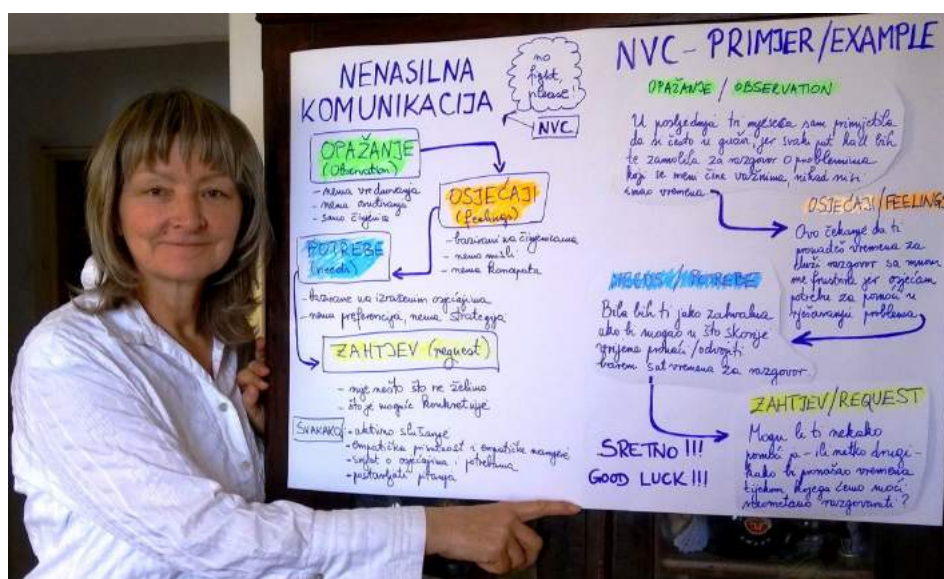 NENASILNA
KOMUNIKACIJA
no
fight,
please!
NVC
OPAŽANJE
(Observation)
- nema vrednovanja
- nema osuđivanja
- samo činjenice
OSJEĆAJI
(feelings)
- bazirani na činjenicama
- nema misli
- nema koncepata
POTREBE
(needs)
- bazirane na izraženim osjećajima
- nema preferencija, nema strategija
ZAHTJEV (request)
- nije nešto što ne želimo
- što je moguće konkretnije
SVAKAKO: - aktivno slušanje
- empatička prisutnost i empatičke namjere
- svijest o osjećajima i potrebama
- postavljati pitanja
NVC - PRIMJER/EXAMPLE
OPAŽANJE / OBSERVATION
U posljednja tri mjeseca sam primijetila
da si često u gužvi, jer svaki put kad bih
te zamolila za razgovor o problemima
koji se meni čine važnima, nikad nisi
imao vremena
OSJEĆAJI/FEELINGS
Ovo čekanje da ti
pronađeš vremena za
duži razgovor sa mnom
me frustrira jer osjećam
potrebu za pomoći u
rješavanju problema
/POTREBE
Bila bih ti jako zahvalna
ako bi mogao u što skorije
vrijeme pronaći/odvojiti
barem sat vremena za razgovor.
ZAHTJEV/REQUEST
Mogu li ti nekako
pomoći ja - ili netko drugi -
kako bi pronašao vremena
tijekom kojega ćemo moći
neometano razgovarati?
SRETNO !!!
GOOD LUCK !!!